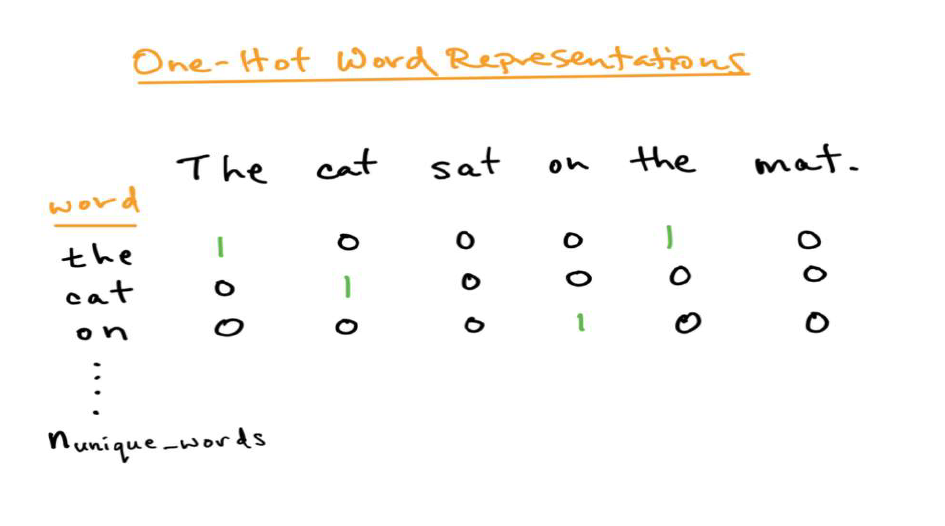 One-Hot Word Representations
The cat sat on the mat.
word
the 1 0 0 0 1 0
cat 0 1 0 0 0 0
on 0 0 0 1 0 0
nunique_words